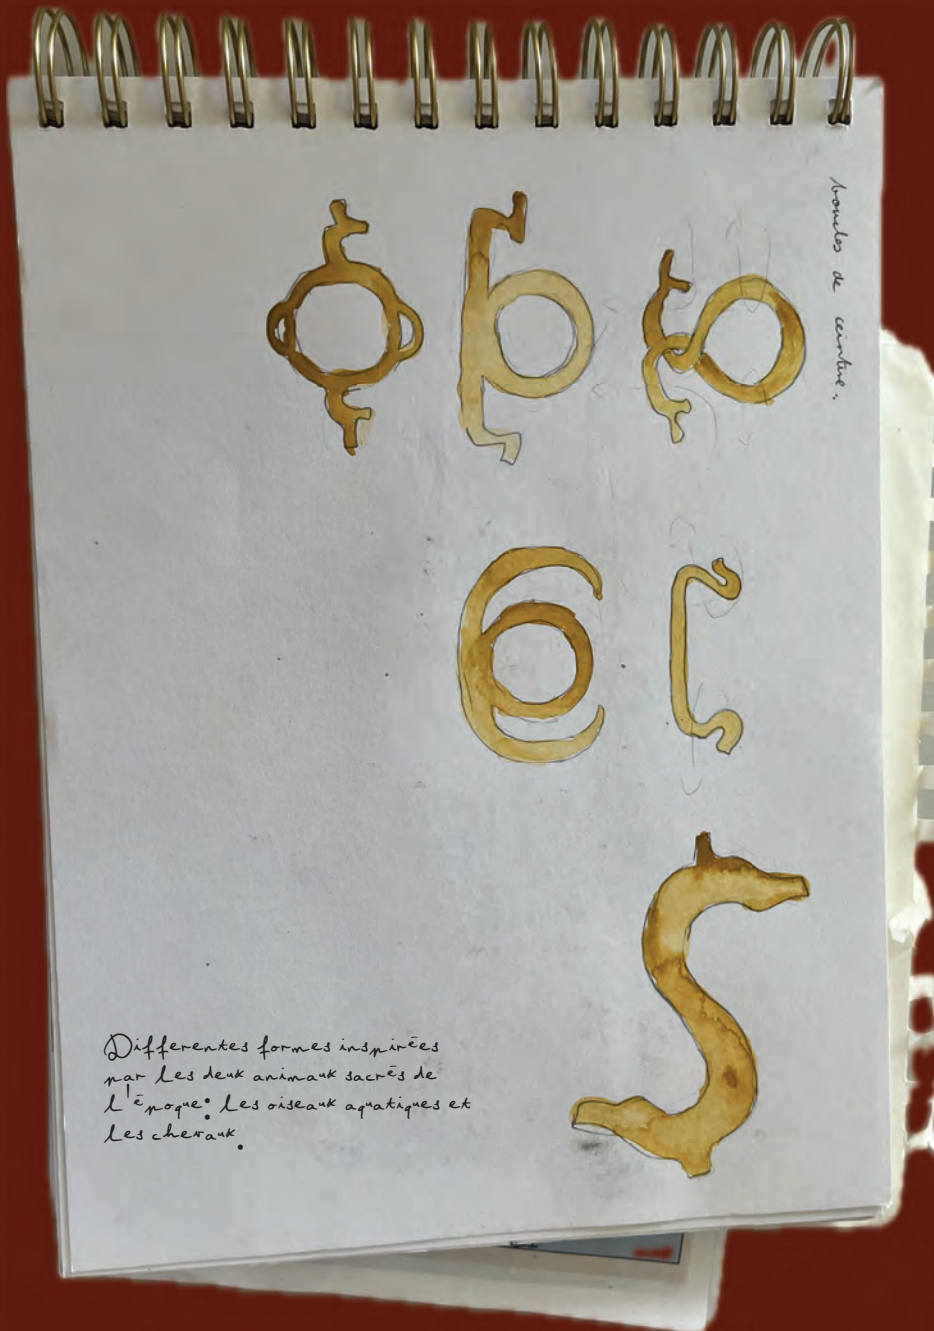 boucles de ceinture.
Differentes formes inspirées
par les deux animaux sacrés de
l'époque: les oiseaux aquatiques et
les chevaux.